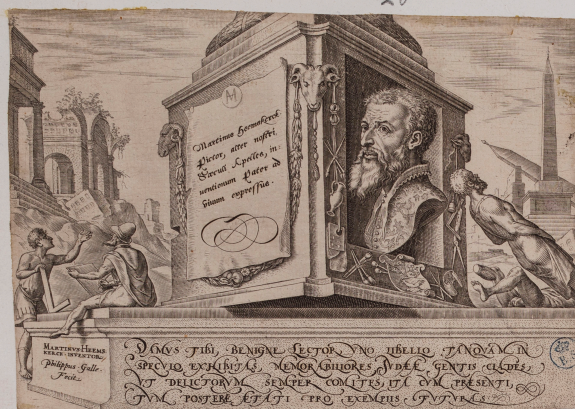 Martinus Heemskerck
Pictor, alter nostri
Sæculi Apelles, in-
uentionum Pater ad
viuum expressus.
MARTINVS HEEMS
KERCK · INVENTOR
Philippus Galle
Fecit
DAMVS TIBI, BENIGNE LECTOR, VNO LIBELLO, TANQVAM IN
SPECVLO EXHIBITAS, MEMORABILIORES IVDEÆ GENTIS CLADES,
VT DELICTORVM SEMPER COMITES, ITA CVM PRÆSENTI,
TVM POSTERÆ ÆTATI PRO EXEMPLIS FVTVRAS.